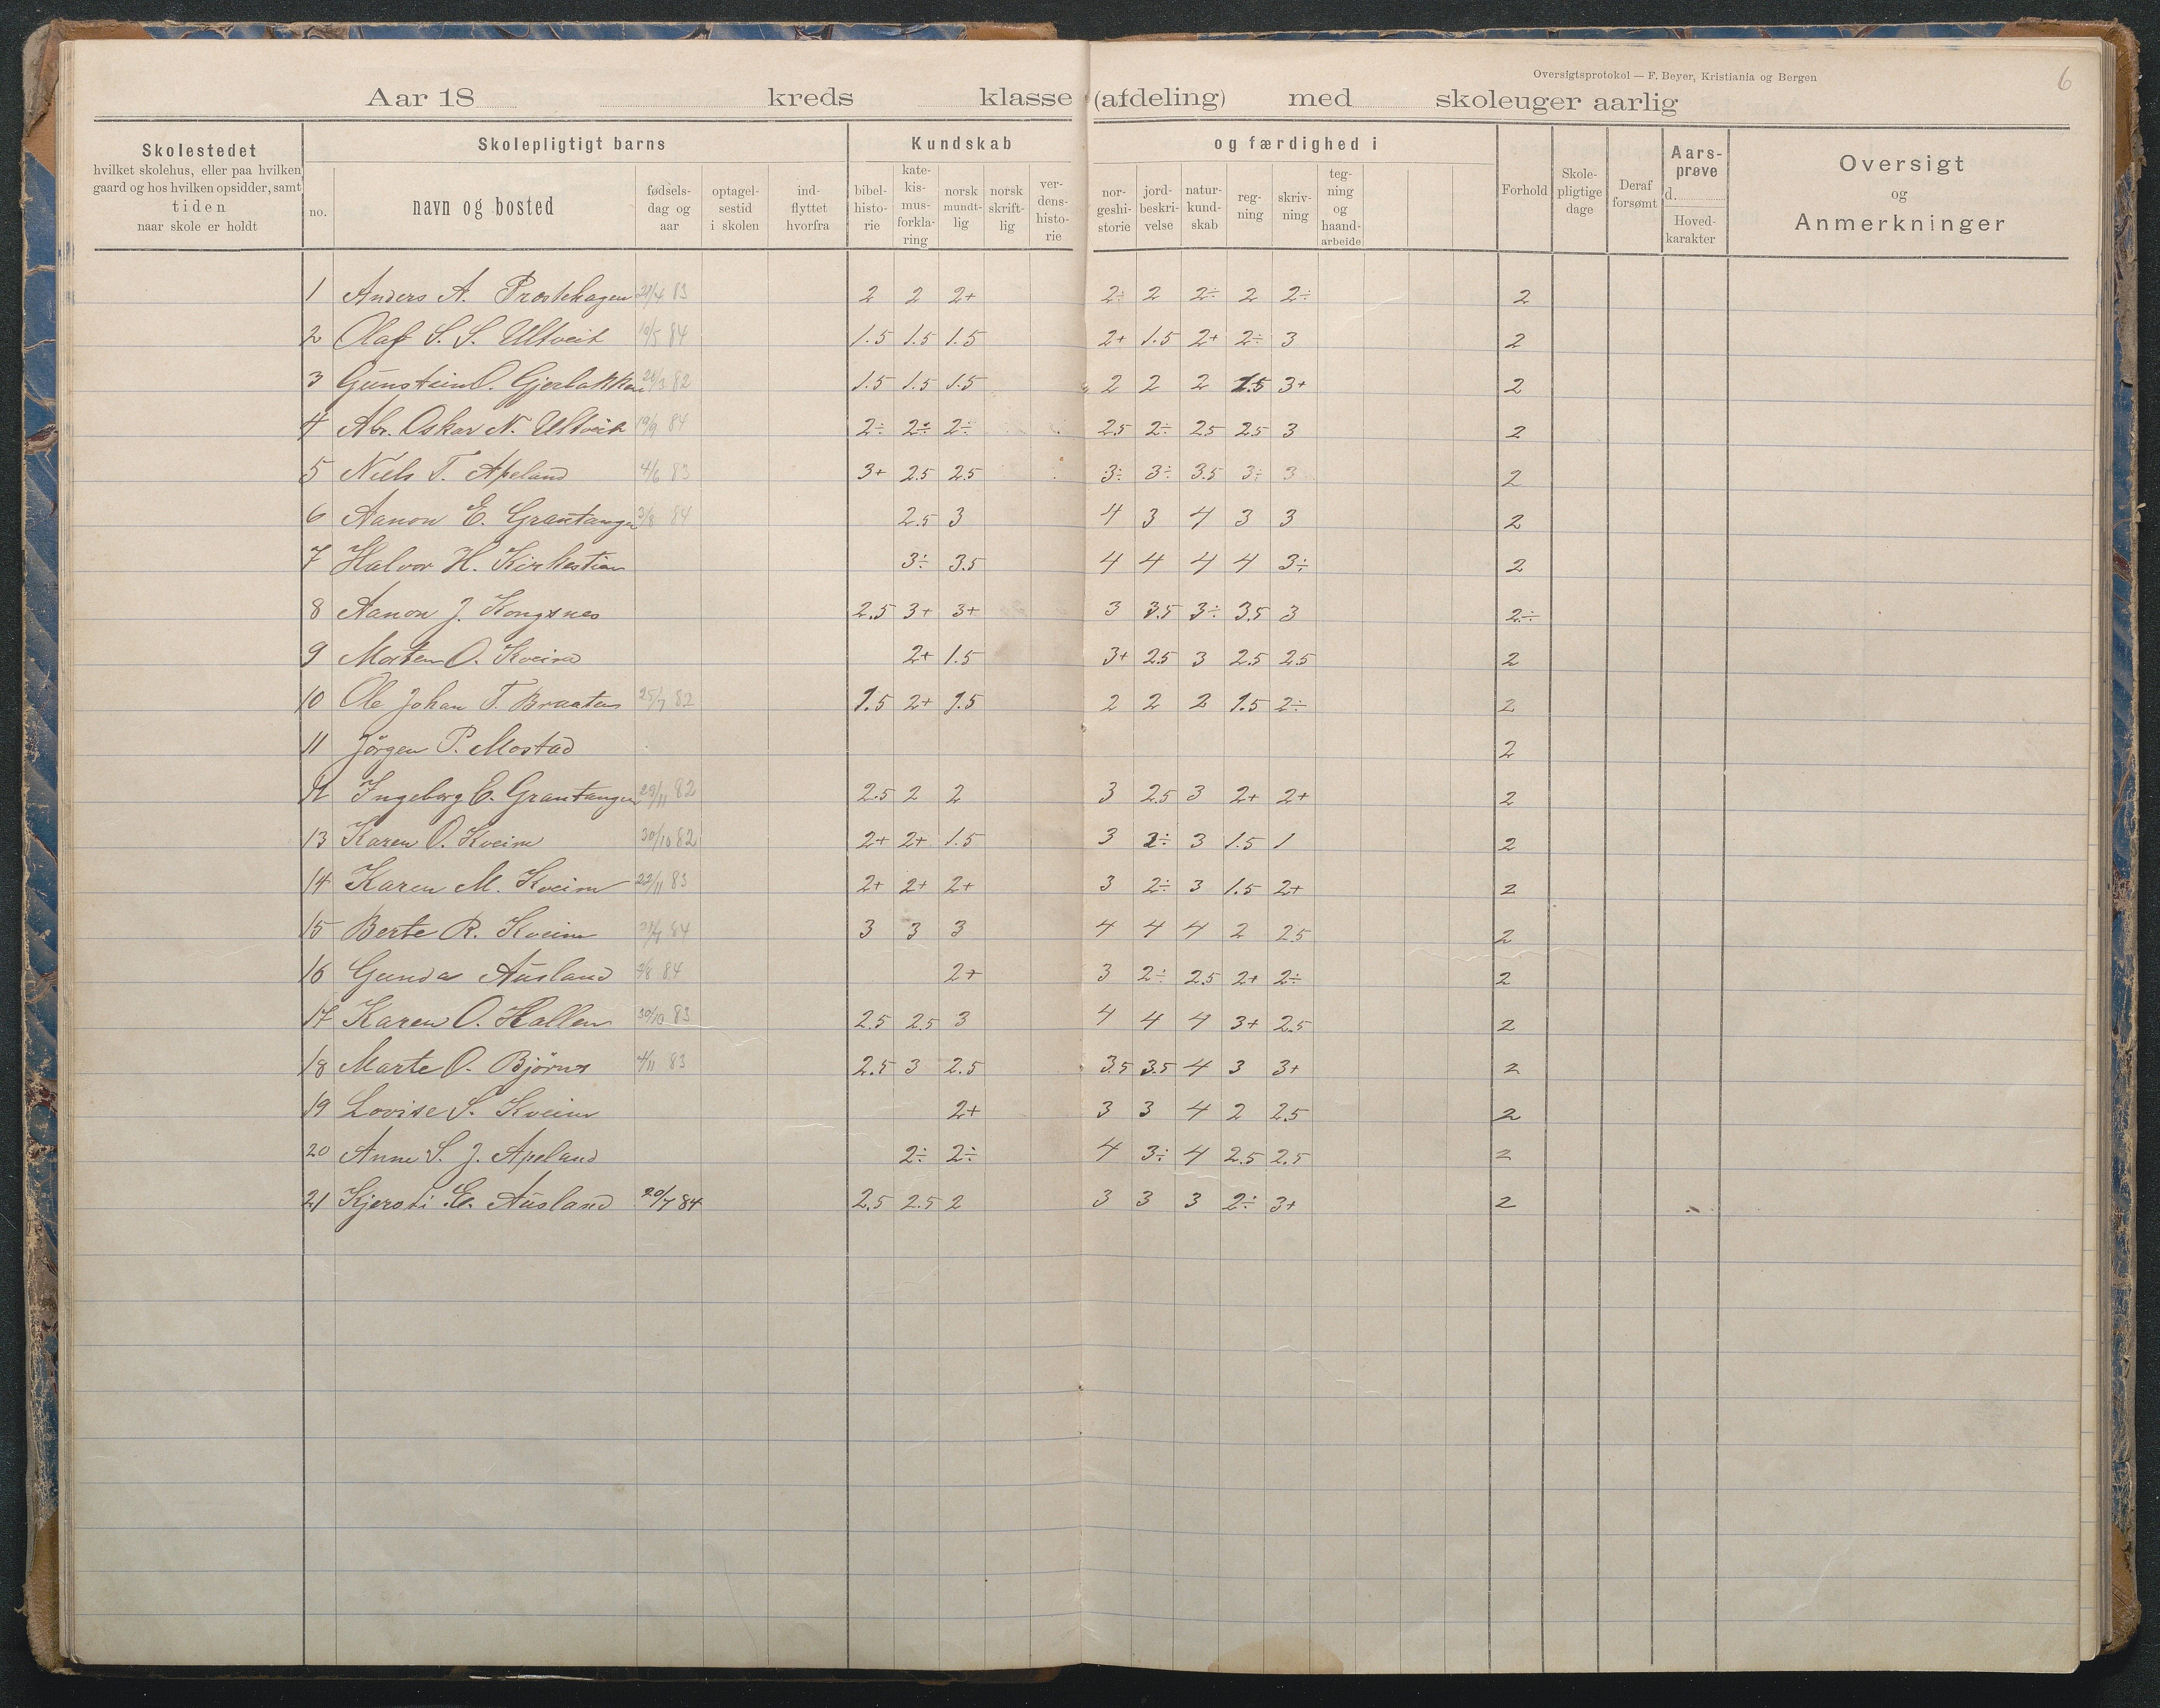 Oversigtsprotokol — F. Beyer, Kristiania og Bergen
6
Aar 18 kreds klasse (afdeling) med skoleuger aarlig
Skolestedet
hvilket skolehus, eller paa hvilken
gaard og hos hvilken opsidder, samt
tiden
naar skole er holdt
Skolepligtigt barns
no.
navn og bosted
fødsels-
dag og
aar
optagel-
sestid
i skolen
ind-
flyttet
hvorfra
Kundskab
bibel-
histo-
rie
kate-
kis-
mus-
forkla-
ring
norsk
mundt-
lig
norsk
skrift-
lig
ver-
dens-
histo-
rie
og færdighed i
nor-
geshi-
storie
jord-
beskri-
velse
natur-
kund-
skab
reg-
ning
skriv-
ning
teg-
ning
og
haand-
arbeide
Forhold
Skole-
pligtige
dage
Deraf
forsømt
Aars-
prøve
d.
Hoved-
karakter
Oversigt
og
Anmerkninger
1 Anders A. Prestehagen 83 2 2 2+ 2÷ 2 2÷ 2 2÷ 2
2 Olaf S. S. Ultveit 19/5 84 1.5 1.5 1.5 2+ 1.5 2+ 2÷ 3 2
3 Gunstein O. Gjerbakken 82 1.5 1.5 1.5 2 2 2 1.5 3+ 2
4 Abr. Oskar N. Ultveit 19/9 84 2÷ 2÷ 2÷ 2.5 2÷ 2.5 2.5 3 2
5 Niels T. Apeland 4/6 83 3+ 2.5 2.5 3÷ 3÷ 3.5 3÷ 3 2
6 Aanon E. Grantangen 3/8 84 2.5 3 4 3 4 3 3 2
7 Halvor H. Kirkestien 3÷ 3.5 4 4 4 4 3÷ 2
8 Aanon J. Kongsnes 2.5 3+ 3+ 3 3.5 3÷ 3.5 3 2÷
9 Morten O. Kveim 2+ 1.5 3+ 2.5 3 2.5 2.5 2
10 Ole Johan T. Braaten 25/7 82 1.5 2+ 1.5 2 2 2 1.5 2÷ 2
11 Jörgen P. Mostad 2
12 Ingeborg E. Grantangen 29/11 82 2.5 2 2 3 2.5 3 2+ 2+ 2
13 Karen O. Kveim 30/10 82 2+ 2+ 1.5 3 2÷ 3 1.5 1 2
14 Karen M. Kveim 22/11 83 2+ 2+ 2+ 3 2÷ 3 1.5 2+ 2
15 Berte R. Kveim 84 3 3 3 4 4 4 2 2.5 2
16 Gunda Ausland 84 2+ 3 2÷ 2.5 2+ 2÷ 2
17 Karen O. Hallen 30/10 83 2.5 2.5 3 4 4 4 3+ 2.5 2
18 Marte O. Björnes 4/11 83 2.5 3 2.5 3.5 3.5 4 3 3+ 2
19 Lovise S. Kveim 2+ 3 3 4 2 2.5 2
20 Anne S. J. Apeland 2÷ 2÷ 4 3÷ 4 2.5 2.5 2
21 Kjersti E. Ausland 20/7 84 2.5 2.5 2 3 3 3 2÷ 3+ 2